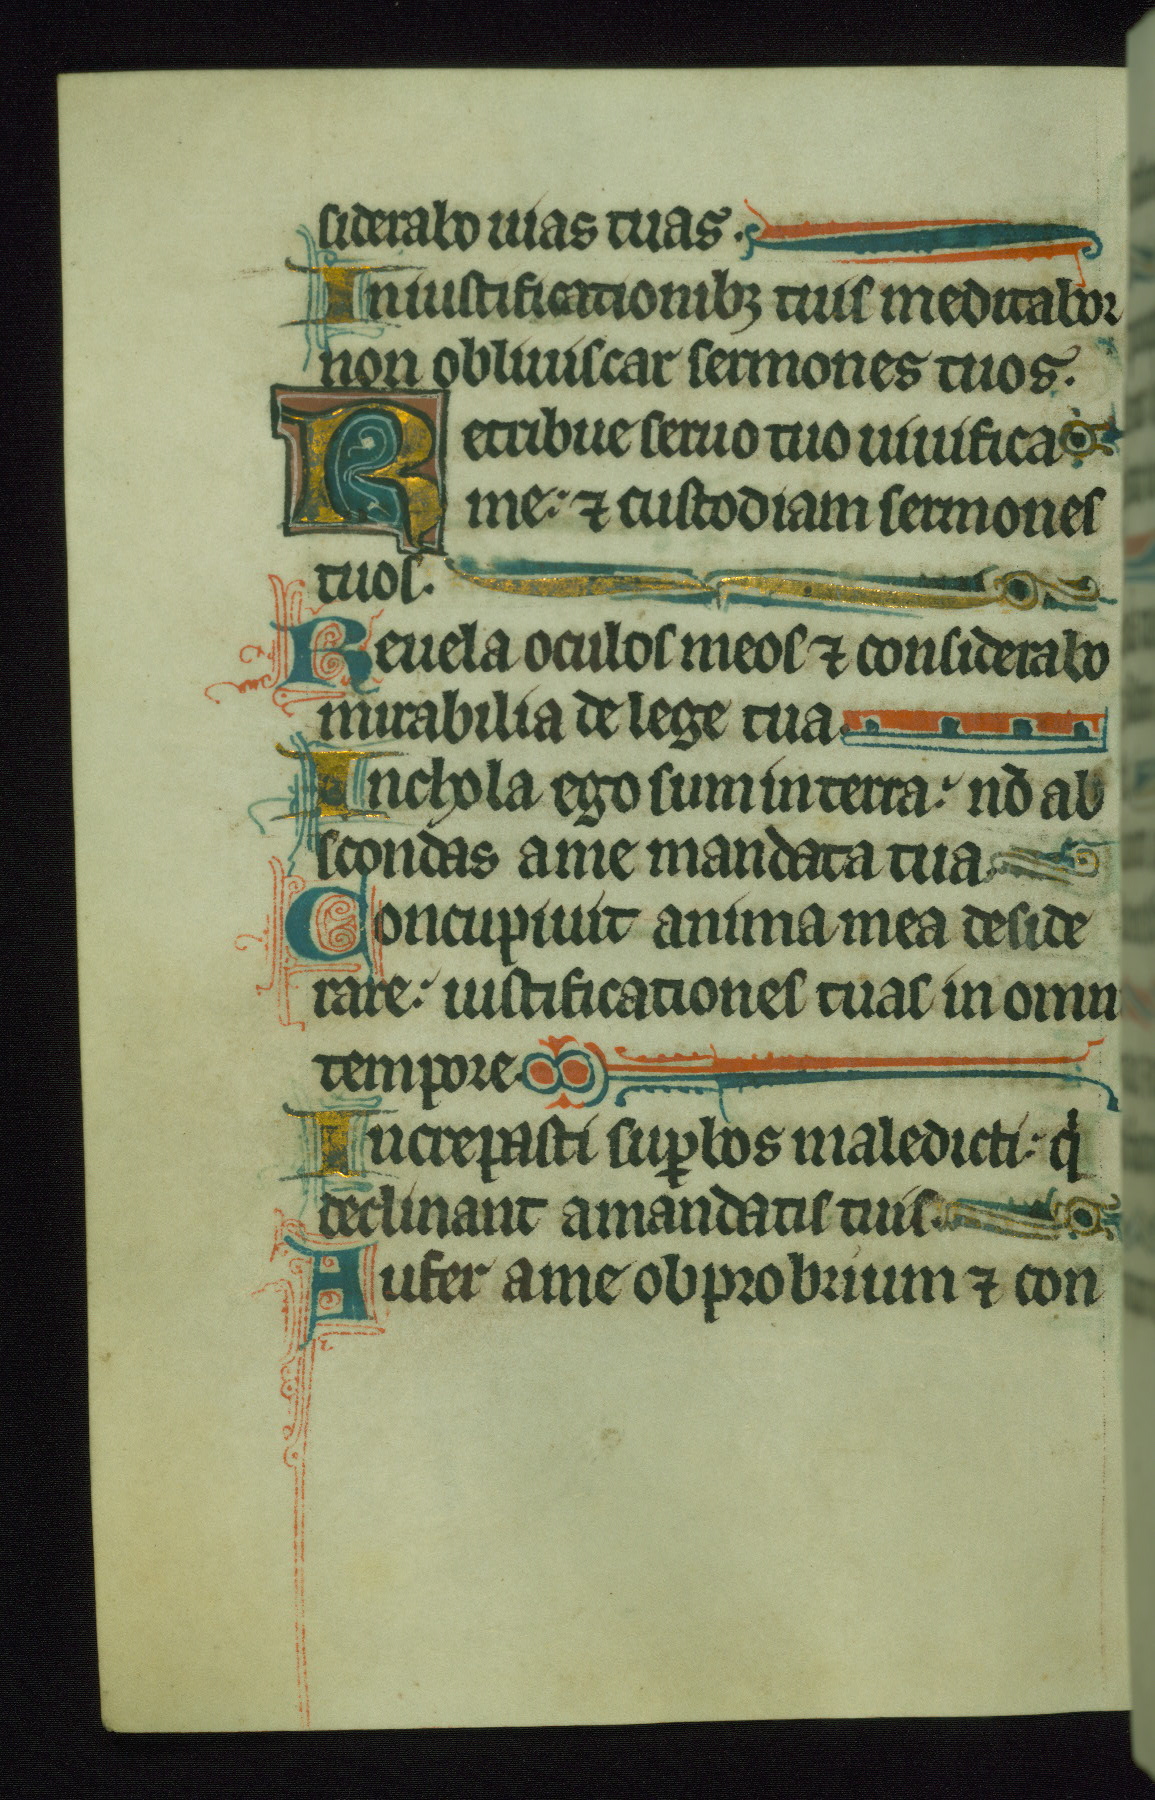 siderabo uias tuas.
In iustificationibꝫ tuis meditabor
non obliuiscar sermones tuos.
Retribue seruo tuo uiuifica
me: ⁊ custodiam sermones
tuos.
Reuela oculos meos ⁊ considerabo
mirabilia de lege tua.
Inchola ego sum in terra: nō ab
scondas a me mandata tua.
Concupiuit anima mea deside
rare: iustificationes tuas in omni
tempore.
Increpasti suꝑbos maledicti: qͥ
declinant a mandatis tuis.
Aufer a me obprobrium ⁊ con